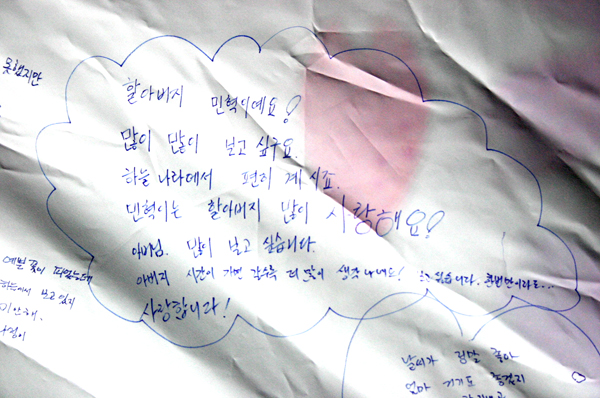 못했지만
할아버지 민혁이예요!
많이 많이 보고 싶구요.
하늘 나라에서 편히 계시죠.
민혁이는 할아버지 많이 사랑해요!
아버님. 많이 보고 싶습니다.
아버지 시간이 가면 갈수록 더 많이 생각나네요! 보고 싶습니다. 한번만이라도...
사랑합니다!
예쁜 꽃이 피었는데
하늘에서 보고 있지
미안해.
날씨가 정말 좋아
엄마 거기도 좋겠지